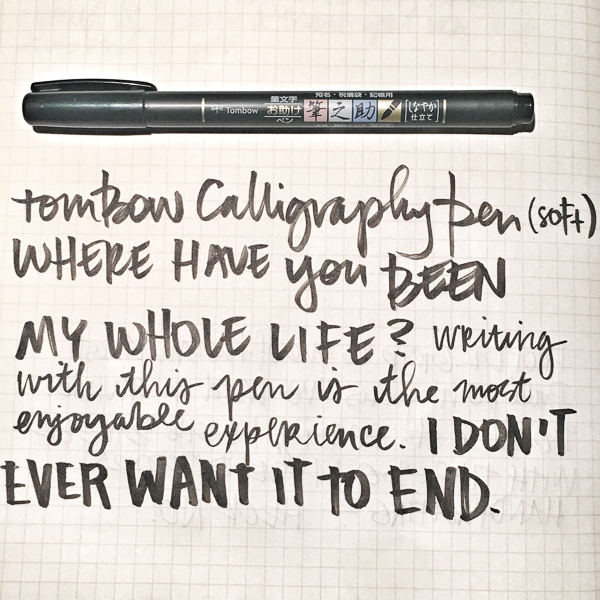 宛名・祝儀袋・記帳用
Tombow 筆文字 お助け ペン 筆之助 しなやか 仕立て
tombow Calligraphy pen (soft)
WHERE HAVE you BEEN
MY WHOLE LIFE? writing
with this pen is the most
enjoyable experience. I DON'T
EVER WANT IT TO END.